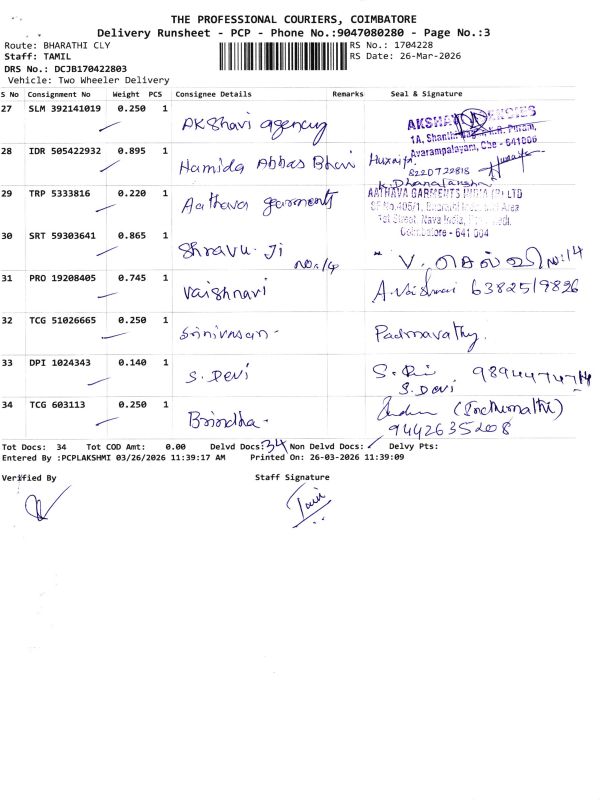 THE PROFESSIONAL COURIERS, COIMBATORE
Delivery Runsheet - PCP - Phone No.:9047080280 - Page No.:3
Route: BHARATHI CLY
RS No.: 1704228
Staff: TAMIL
RS Date: 26-Mar-2026
DRS No.: DCJB170422803
Vehicle: Two Wheeler Delivery
S No Consignment No Weight PCS Consignee Details Remarks Seal & Signature
27 SLM 392141019 0.250 1
Akshavi agency
AKSHAVI AGENCIES
1A, Shanthi K.R. Puram,
Avarampalayam, Cbe - 641006
28 IDR 505422932 0.895 1
Hamida Abbas Bhai Huzaifa
8220722818
29 TRP 5333816 0.220 1
Aathava garments
K. Dhanalakshmi
AATHAVA GARMENTS INDIA (P) LTD
1st Street, Nava India,
Coimbatore - 641 004
30 SRT 59303641 0.865 1
Shravu. Ji
No:14
V. செல்வி No:14
31 PRO 19208405 0.745 1
Vaishnavi
A. Vaishnavi 6382519896
32 TCG 51026665 0.250 1
Srinivasan.
Padmavathy.
33 DPI 1024343 0.140 1
S. Devi
S. Devi
34 TCG 603113 0.250 1
Brindha.
(Indhumathi)
9442635208
Tot Docs: 34 Tot COD Amt: 0.00 Delvd Docs: 34 Non Delvd Docs: Delvy Pts:
Entered By :PCPLAKSHMI 03/26/2026 11:39:17 AM Printed On: 26-03-2026 11:39:09
Verified By Staff Signature